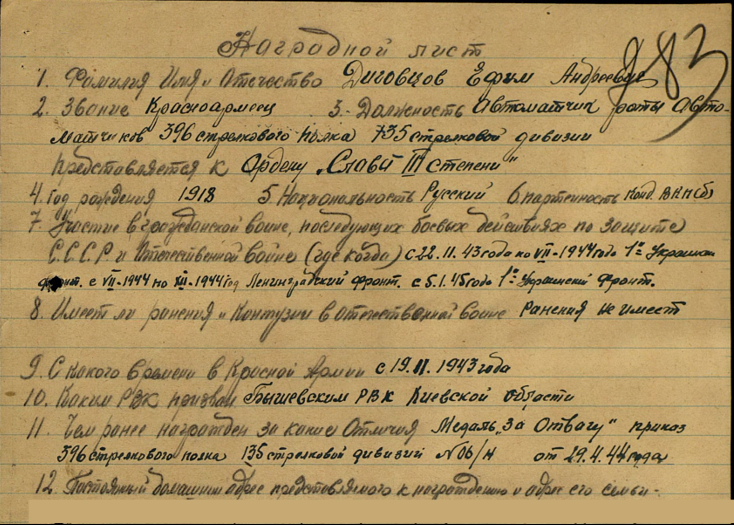 983
Наградной лист
1. Фамилия Имя и Отечество Диговцов Ефим Андреевич
2. Звание Красноармеец 3. Должность Автоматчик роты Авто-
матчиков 396 стрелкового полка 735 стрелковой дивизии
Представляется к Ордену "Славы III степени"
4. Год рождения 1918 5 Национальность Русский 6. партейность Конд. ВКП(б)
7. Участие в гражданской войне, последующих боевых действиях по защите
С.С.С.Р и Отечественной войне (где когда) с 22.11.43 года по VII-1944 года 1й Украинс
фронт. с VII-1944 по XII-1944 год Ленинградский фронт. с 5.1.45 года 1й Украинский Фронт.
8. Имеет ли ранения и Контузии в отечественной войне Ранения не имеет
9. С какого времени в Красной Армии с 19.11.1943 года
10. Каким РВК призван Бышевским РВК Киевской области
11. Чем ранее награжден за какие Отличия Медаль "За Отвагу" приказ
396 стрелкового полка 135 стрелковой дивизий №06/н от 29.4.44 года
12. Постоянный домашний адрес представляемого к награждению и адрес его семьи-